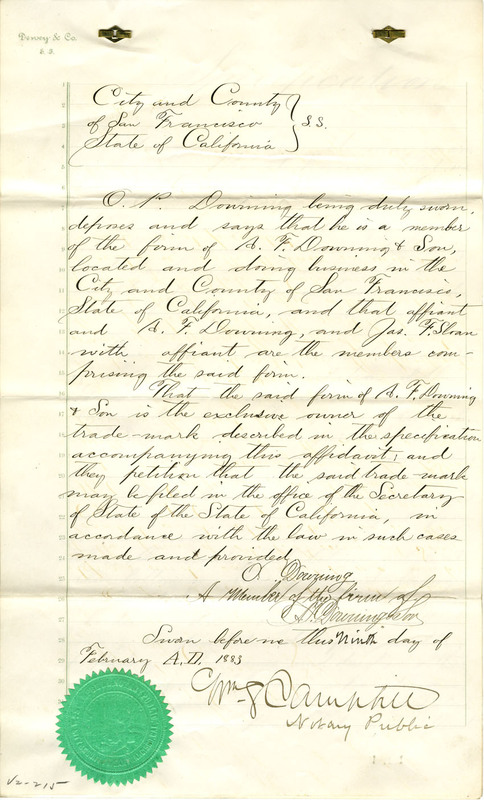 Dewey & Co.
S. F.
City and County
of San Francisco } S.S.
State of California
O. P. Downing being duly sworn,
deposes and says that he is a member
of the firm of A. F. Downing & Son,
located and doing business in the
City and County of San Francisco,
State of California, and that affiant
and A. F. Downing, and Jas. F. Sloan
with affiant are the members com-
prising the said firm.
That the said firm of A. F. Downing
& Son is the exclusive owner of the
trade-mark described in the specification
accompanying this affidavit, and
they petition that the said trade-mark
may be filed in the office of the Secretary
of State of the State of California, in
accordance with the law in such cases
made and provided
O. Downing
A Member of the firm of
A. F. Downing & Son
Sworn before me this Ninth day of
February A.D. 1883
Wm Campbell
Notary Public
V2-215